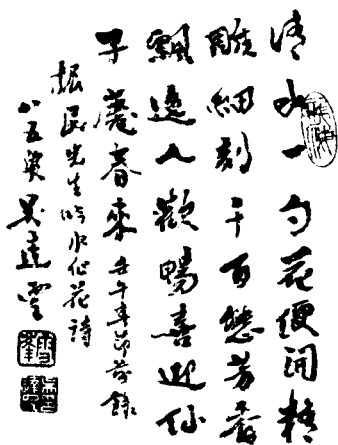 清水一勺花便開精
雕細刻千百態芳香
飄逸人歡暢喜迎仙
子麗春來 壬午 錄
民先生吟水仙花詩
八五叟吳 雲